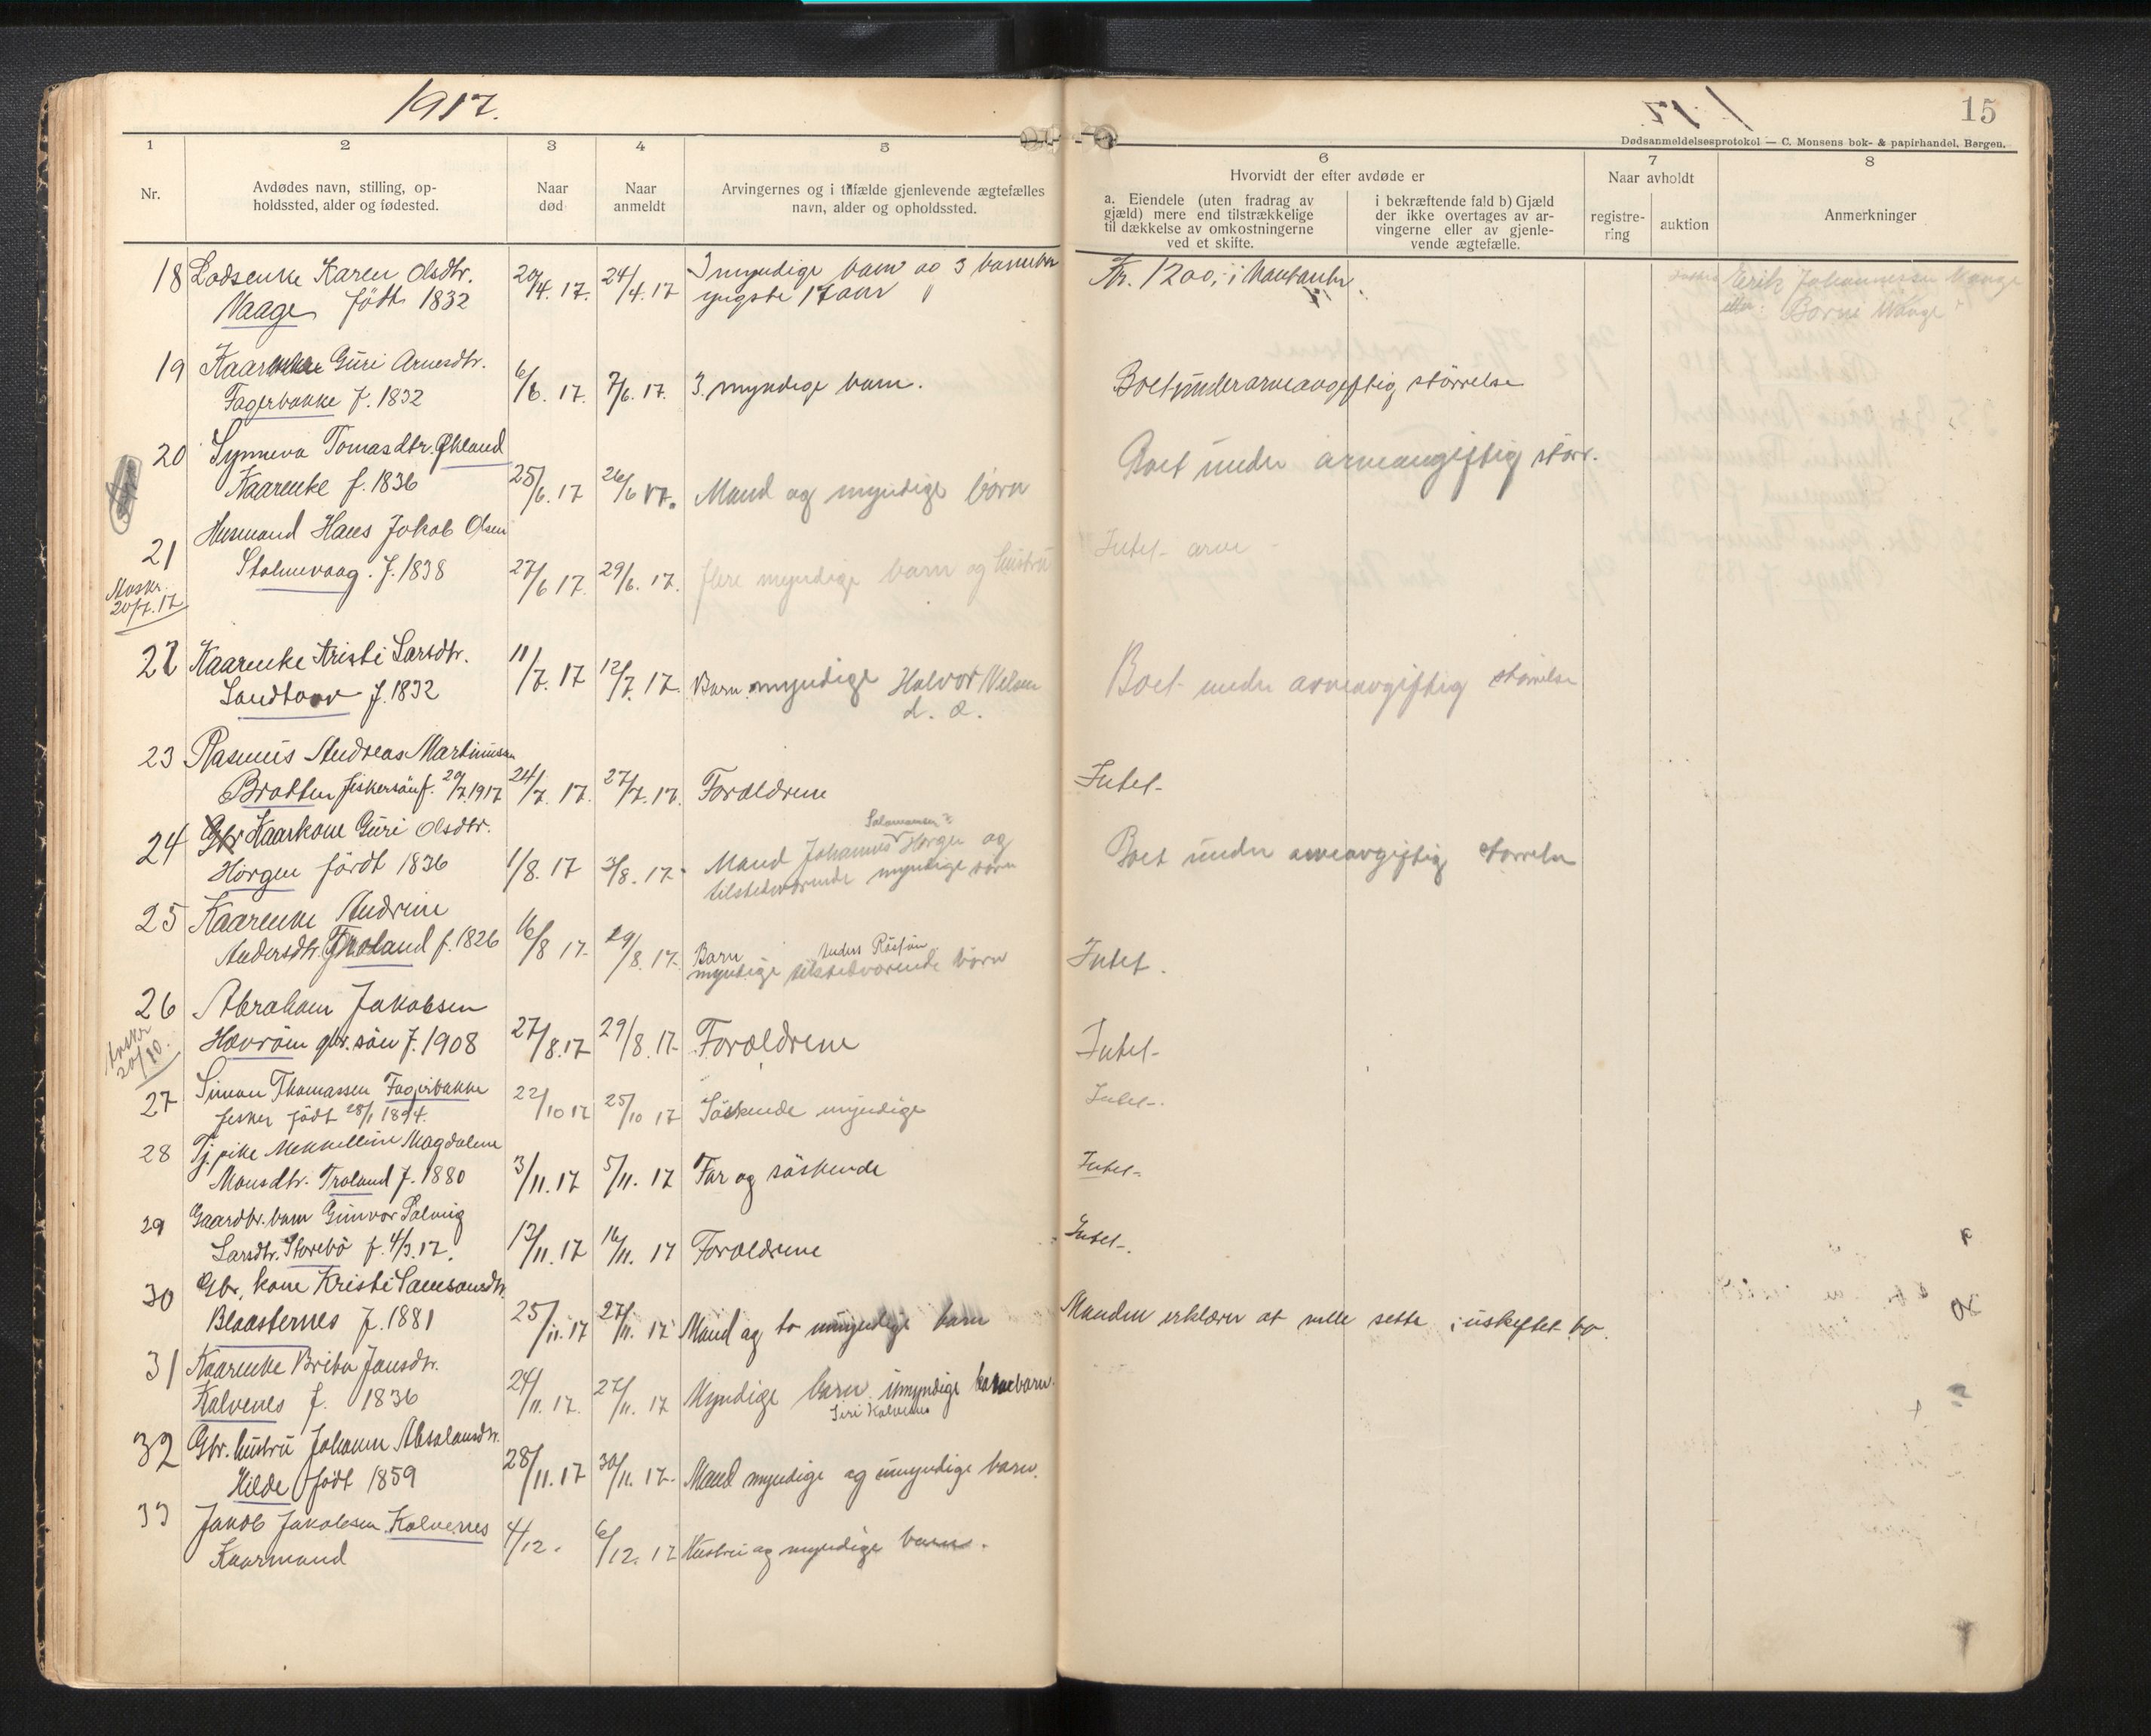 1917.
15
Dødsanmeldelsesprotokol — C. Monsens bok- & papirhandel, Bergen.
1
2
3
4
5
6
7
8
Nr.
Avdødes navn, stilling, op-
holdssted, alder og fødested.
Naar
død
Naar
anmeldt
Arvingernes og i tilfælde gjenlevende ægtefælles
navn, alder og opholdssted.
Hvorvidt der efter avdøde er
a. Eiendele (uten fradrag av
gjæld) mere end tilstrækkelige
til dækkelse av omkostningerne
ved et skifte.
i bekræftende fald b) Gjæld
der ikke overtages av ar-
vingerne eller av gjenle-
vende ægtefælle.
Naar avholdt
registre-
ring
auktion
Anmerkninger
18 Lodsenke Karen Olsdtr.
Vaage født 1832
20/4. 17. 24/4. 17
3 myndige barn og 3 barnebarn
yngste 17 aar
Kr. 1200,- i
Erik Johannessen Vaage
Vaage
19 Kaarenke Guri Arnesdtr.
Fagerbakke f. 1832
6/6. 17. 7/6. 17. 3 myndige barn.
Boet under arveavgiftig størrelse
20 Synneva Tomasdtr. Økland
Kaarenke f. 1836
25/6. 17 26/6 17. Mand og myndige børn
Boet under arveavgiftig størr.
21 Husmand Hans Jakob Olsen
Stolmevaag. f. 1838
27/6 17. 29/6. 17. flere myndige barn og hustru
Intet arve
20/7. 17
22 Kaarenke Kristi Larsdtr.
Sandtorv f. 1832
11/7. 17 12/7. 17. Barn myndige Halvor Nelsen
d. æ.
Boet under arveavgiftig størrelse
23 Rasmus Andreas Martinussen
Bratten fiskersøn f. 20/7. 1917
24/7. 17. 27/7. 17. Forældrene
Intet-
24 Gbr Kaarkone Guri Olsdtr.
Horgen født 1836
1/8. 17 3/8. 17. Mand Johannes Salamonsen Horgen og
tilstedværende myndige børn
Boet under arveavgiftig størrelse
25 Kaarenke Andrine
Andersdtr. Troland f. 1826
16/8 17. 29/8. 17. Barn Anders
myndige tilstedværende børn
Intet.
26 Abraham Jakobsen
Hevrøin gbr. søn f. 1908
27/8. 17 29/8. 17. Forældrene
Intet-
20/10.
27 Simon Thomassen Fagerbakke
fisker født 28/1 1894.
22/10 17 25/10 17 Søskende myndige
Intet-.
28 Tj. pike Magdalene
Monsdtr. Troland f. 1880
3/11. 17 5/11. 17 Far og søskende
Intet-.
29 Gaardbr. barn Gunvor Solveig
Larsdtr. Storebø f. 4/3. 17.
13/11. 17 16/11. 17 Forældrene
Intet-.
30 Gbr. kone Kristi Samsonsdtr.
Blaasternes f. 1881
25/11. 17 27/11. 17 Mand og to umyndige barn
Manden erklærer at ville sette i uskiftet bo.
31 Kaarenke Brita Jansdtr.
Kalvenes f. 1836
24/11. 17. 27/11. 17 Myndige barn umyndige barnebarn.
Siri Kalvenes
32 Gbr. hustru Johanna Absalonsdtr.
Hilde født 1859
28/11. 17 30/11. 17. Mand myndige og umyndige barn.
33 Jakob Jakobsen Kalvenes
Kaarmand
4/12. 6/12. 17 Hustru og myndige barn.